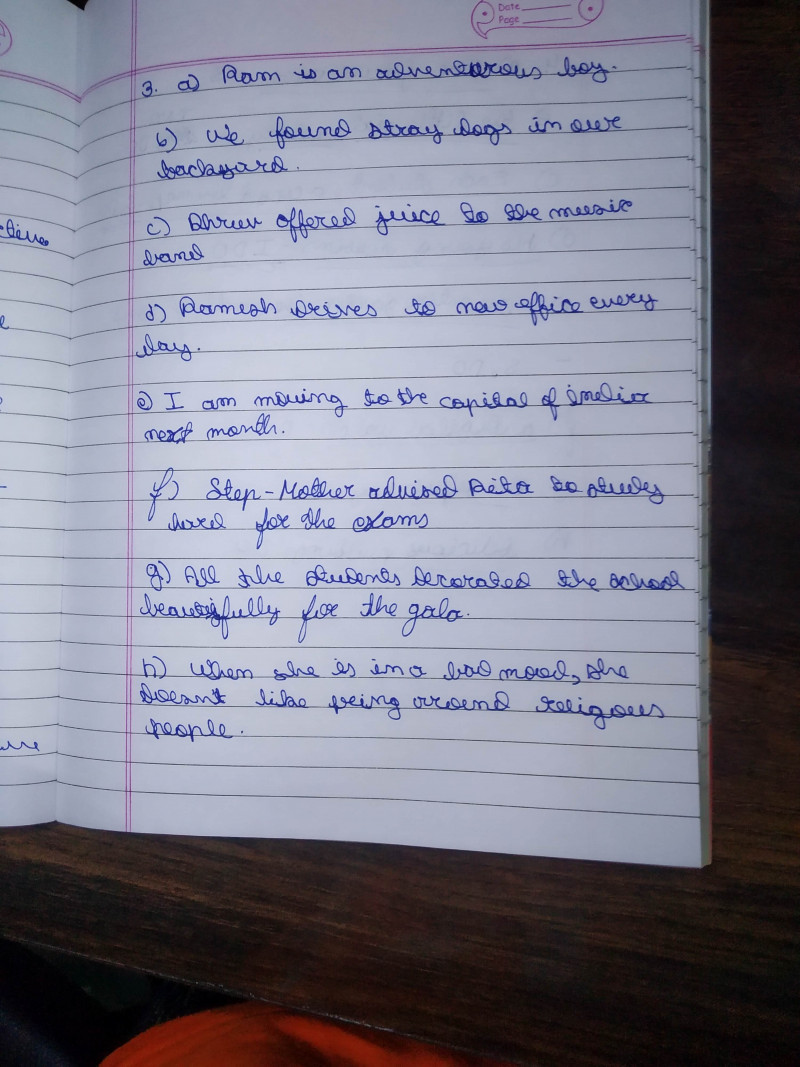 Date
Page
3. a) Ram is an adventurous boy.
b) We found stray dogs in our
backyard.
c) Dhruv offered juice to the music
band
d) Ramesh drives to new office every
day.
e) I am moving to the capital of india
next month.
f) Step-Mother advised Rita to study
hard for the exams
g) All the students decorated the school
beautifully for the gala.
h) When she is in a bad mood, she
doesn't like being around religous
people.